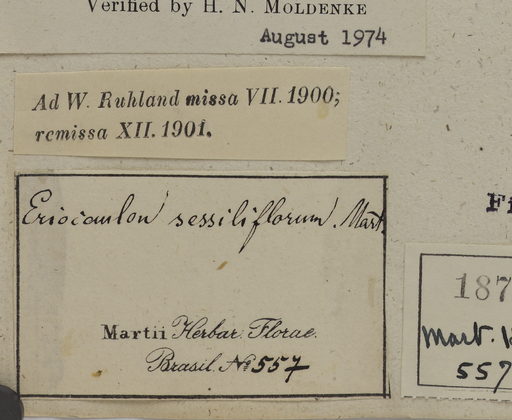 Verified by H. N. MOLDENKE
August 1974
Ad W. Ruhland missa VII. 1900;
remissa XII. 1901.
Eriocaulon sessiliflorum. Mart.
Martii Herbar. Florae.
Brasil. No 557
187
Mart.
557